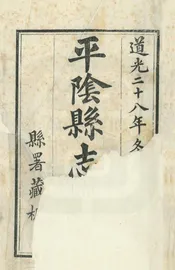 道光二十八年冬
平陰縣志
縣署藏板